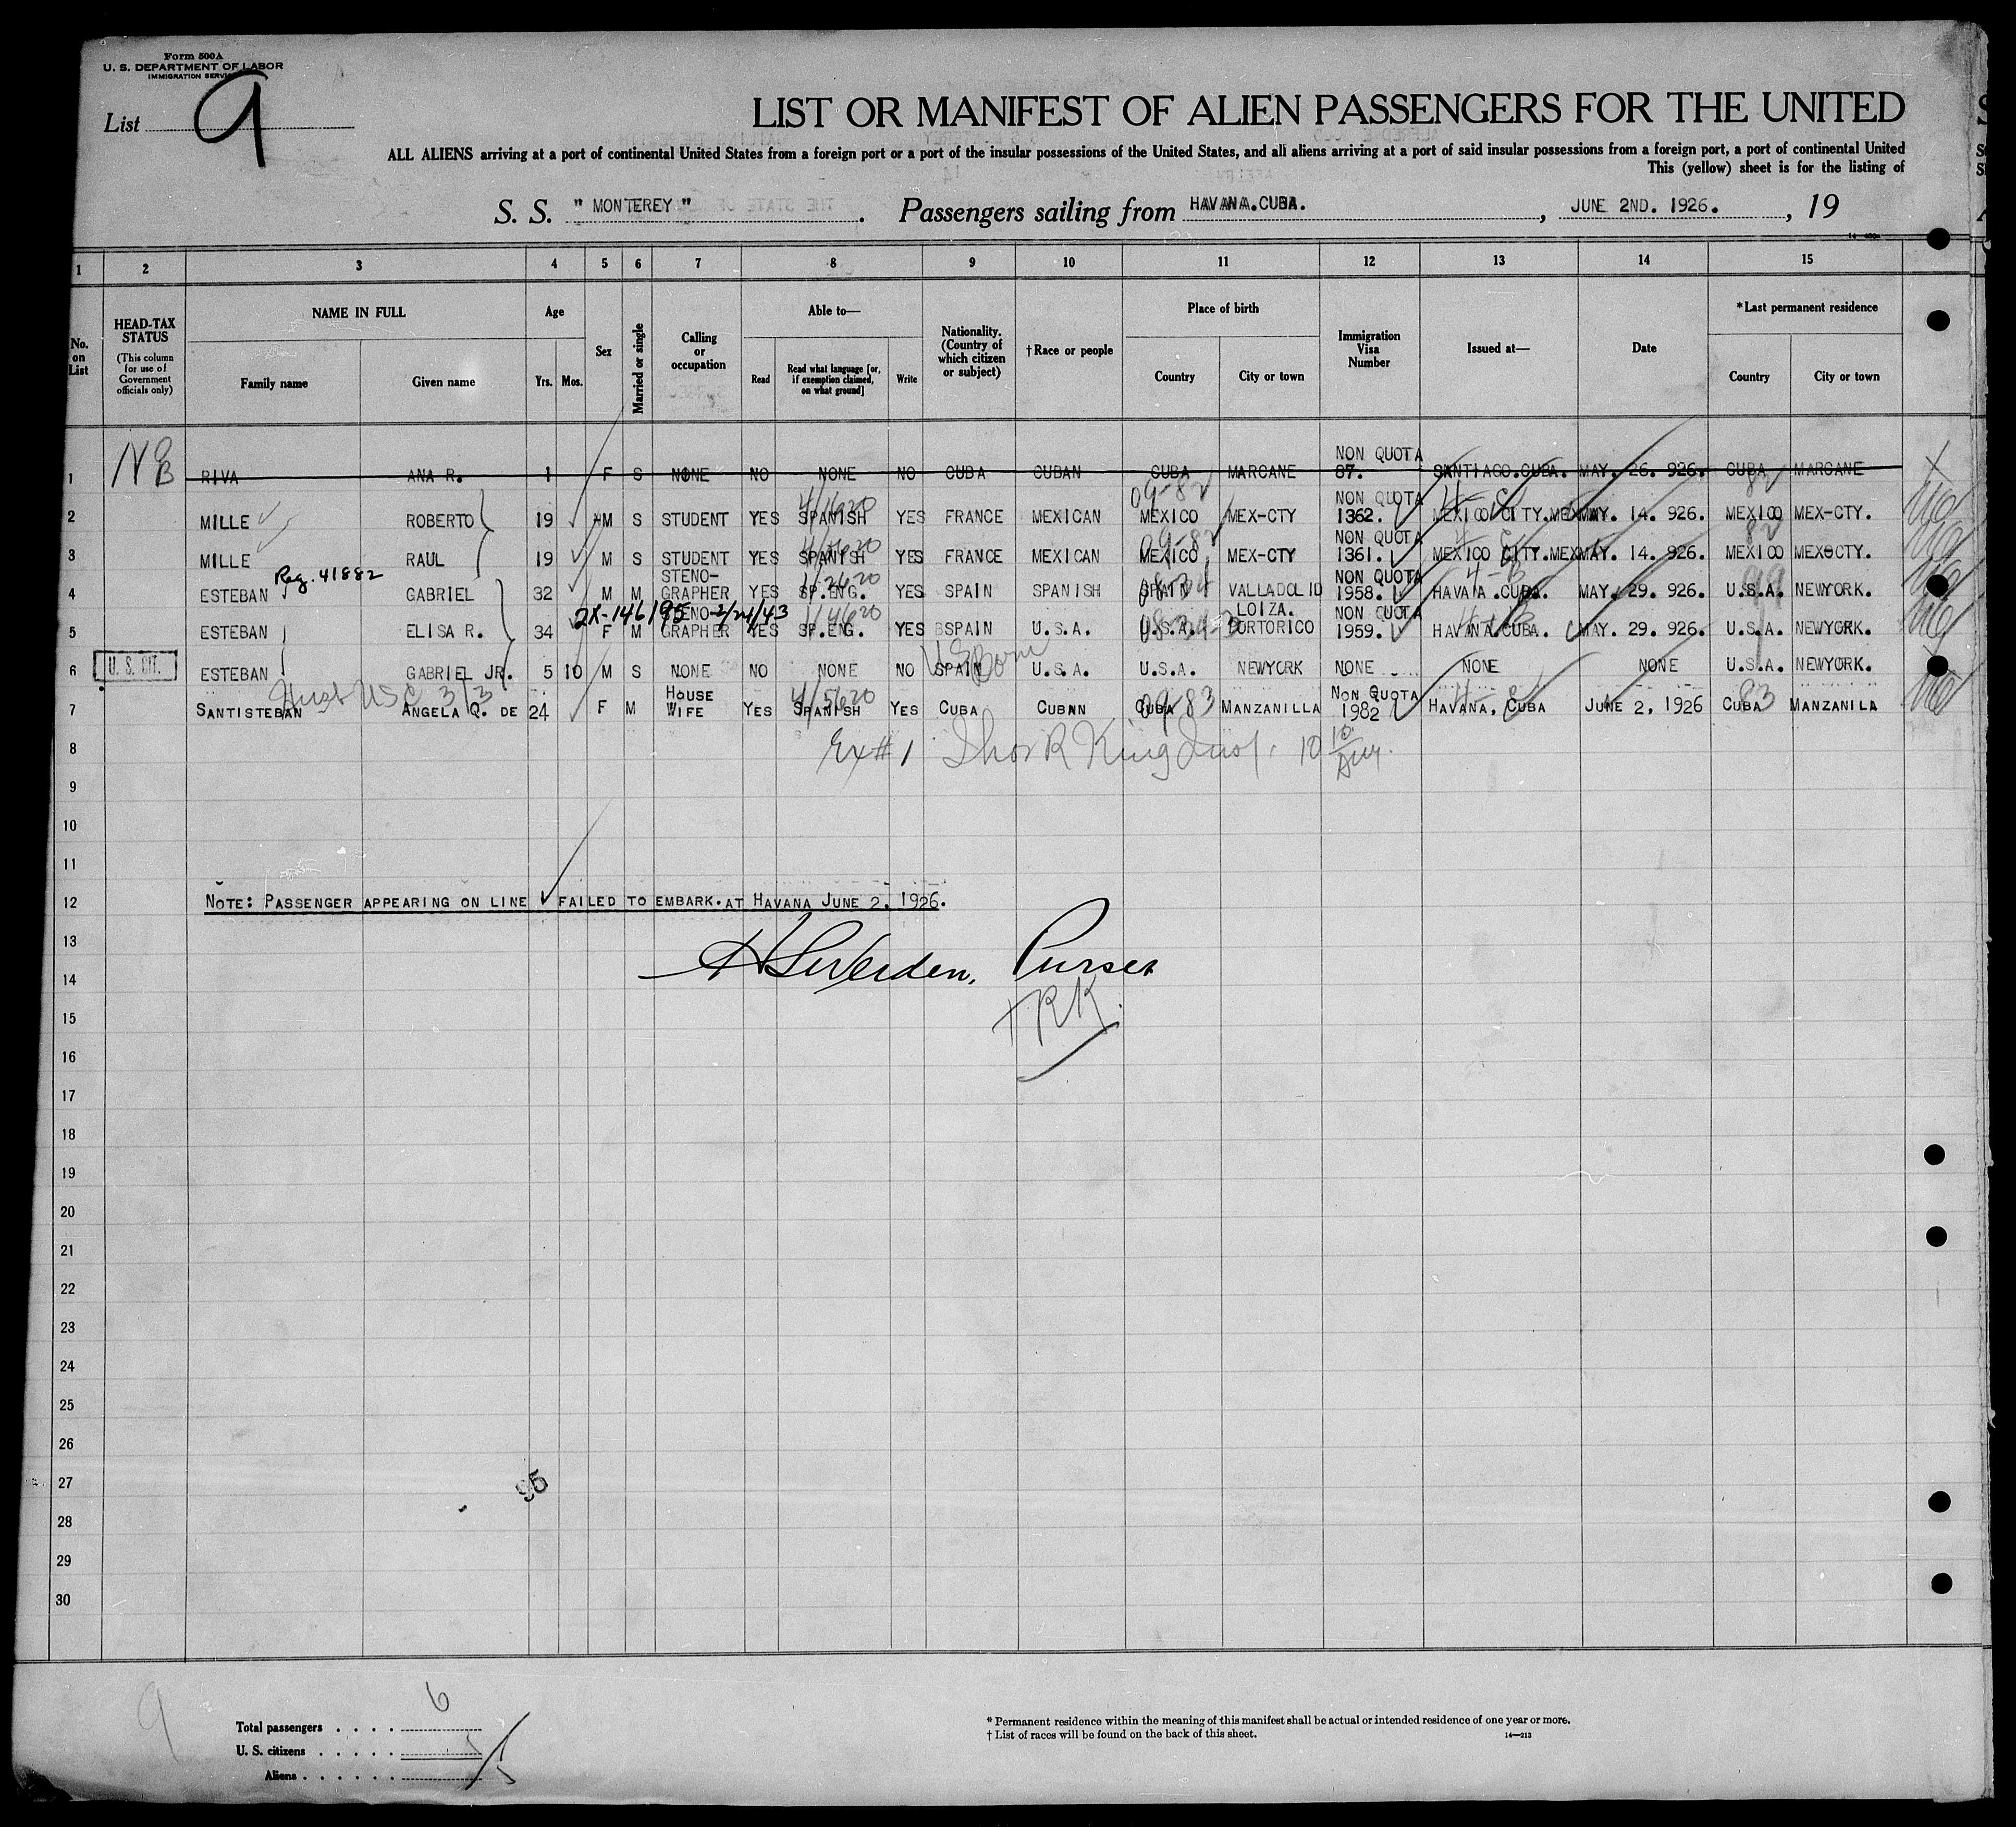 Form 500A
U. S. DEPARTMENT OF LABOR
IMMIGRATION SERVICE
List 9
LIST OR MANIFEST OF ALIEN PASSENGERS FOR THE UNITED
ALL ALIENS arriving at a port of continental United States from a foreign port or a port of the insular possessions of the United States, and all aliens arriving at a port of said insular possessions from a foreign port, a port of continental United
This (yellow) sheet is for the listing of
S. S. "MONTEREY". Passengers sailing from HAVANA.CUBA., JUNE 2ND. 1926., 19
1 2 3 4 5 6 7 8 9 10 11 12 13 14 15
No. on List
HEAD-TAX STATUS (This column for use of Government officials only)
NAME IN FULL Family name Given name
Age Yrs. Mos.
Sex
Married or single
Calling or occupation
Able to— Read Read what language [or, if exemption claimed, on what ground] Write
Nationality. (Country of which citizen or subject)
†Race or people
Place of birth Country City or town
Immigration Visa Number
Issued at—
Date
*Last permanent residence Country City or town
1 RIVA ANA R. 1 F S NONE NO NONE NO CUBA CUBAN CUBA MARCANE NON QUOTA 87. SANTIAGO.CUBA. MAY. 26. 926. CUBA MARCANE
2 MILLE ROBERTO 19 M S STUDENT YES SPANISH YES FRANCE MEXICAN MEXICO MEX-CTY NON QUOTA 1362. MEXICO CITY.MEX MAY. 14. 926. MEXICO MEX-CTY.
3 MILLE RAUL 19 M S STUDENT YES SPANISH YES FRANCE MEXICAN MEXICO MEX-CTY NON QUOTA 1361. MEXICO CITY.MEX MAY. 14. 926. MEXICO MEX-CTY.
Reg. 41882
4 ESTEBAN GABRIEL 32 M M STENO-GRAPHER YES SP.ENG. YES SPAIN SPANISH SPAIN VALLADOLID NON QUOTA 1958. HAVANA.CUBA. MAY. 29. 926. U.S.A. NEWYORK.
2X-146195 2/24/43
5 ESTEBAN ELISA R. 34 F M STENO-GRAPHER YES SP.ENG. YES SPAIN U.S.A. U.S.A. LOIZA. PORTORICO NON QUOTA 1959. HAVANA.CUBA. MAY. 29. 926. U.S.A. NEWYORK.
US Born
6 U. S. CIT. ESTEBAN GABRIEL JR. 5 10 M S NONE NO NONE NO SPAIN U.S.A. U.S.A. NEWYORK NONE NONE NONE U.S.A. NEWYORK.
7 SANTISTEBAN ANGELA Q. DE 24 F M HOUSE WIFE YES SPANISH YES CUBA CUBAN CUBA MANZANILLA NON QUOTA 1982 HAVANA, CUBA JUNE 2, 1926 CUBA MANZANILA
8
9
10
11
12 NOTE: PASSENGER APPEARING ON LINE FAILED TO EMBARK.AT HAVANA JUNE 2, 1926.
13
Purser
14
TRK.
15
16
17
18
19
20
21
22
23
24
25
26
27 95
28
29
30
9
Total passengers . . . . 6
U. S. citizens . . . . . 1
Aliens . . . . . . 5
* Permanent residence within the meaning of this manifest shall be actual or intended residence of one year or more.
† List of races will be found on the back of this sheet. 14—213